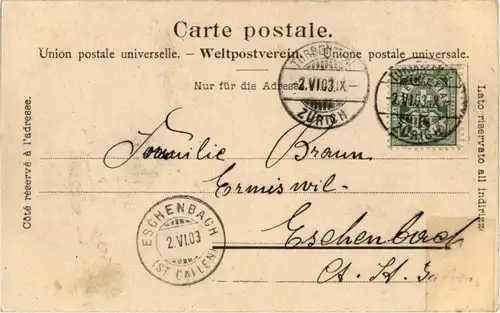 Carte postale.
Union postale universelle. – Weltpostverein. – Unione postale universale.
Nur für die Adresse
Côté réservé à l'adresse.
Lato riservato all indirizzo
2.VI.03.IX
ZÜRICH
ZÜRICH
Familie Braun
Ermiswil-
Eschenbach
ESCHENBACH
2.VI.03
(ST GALLEN)